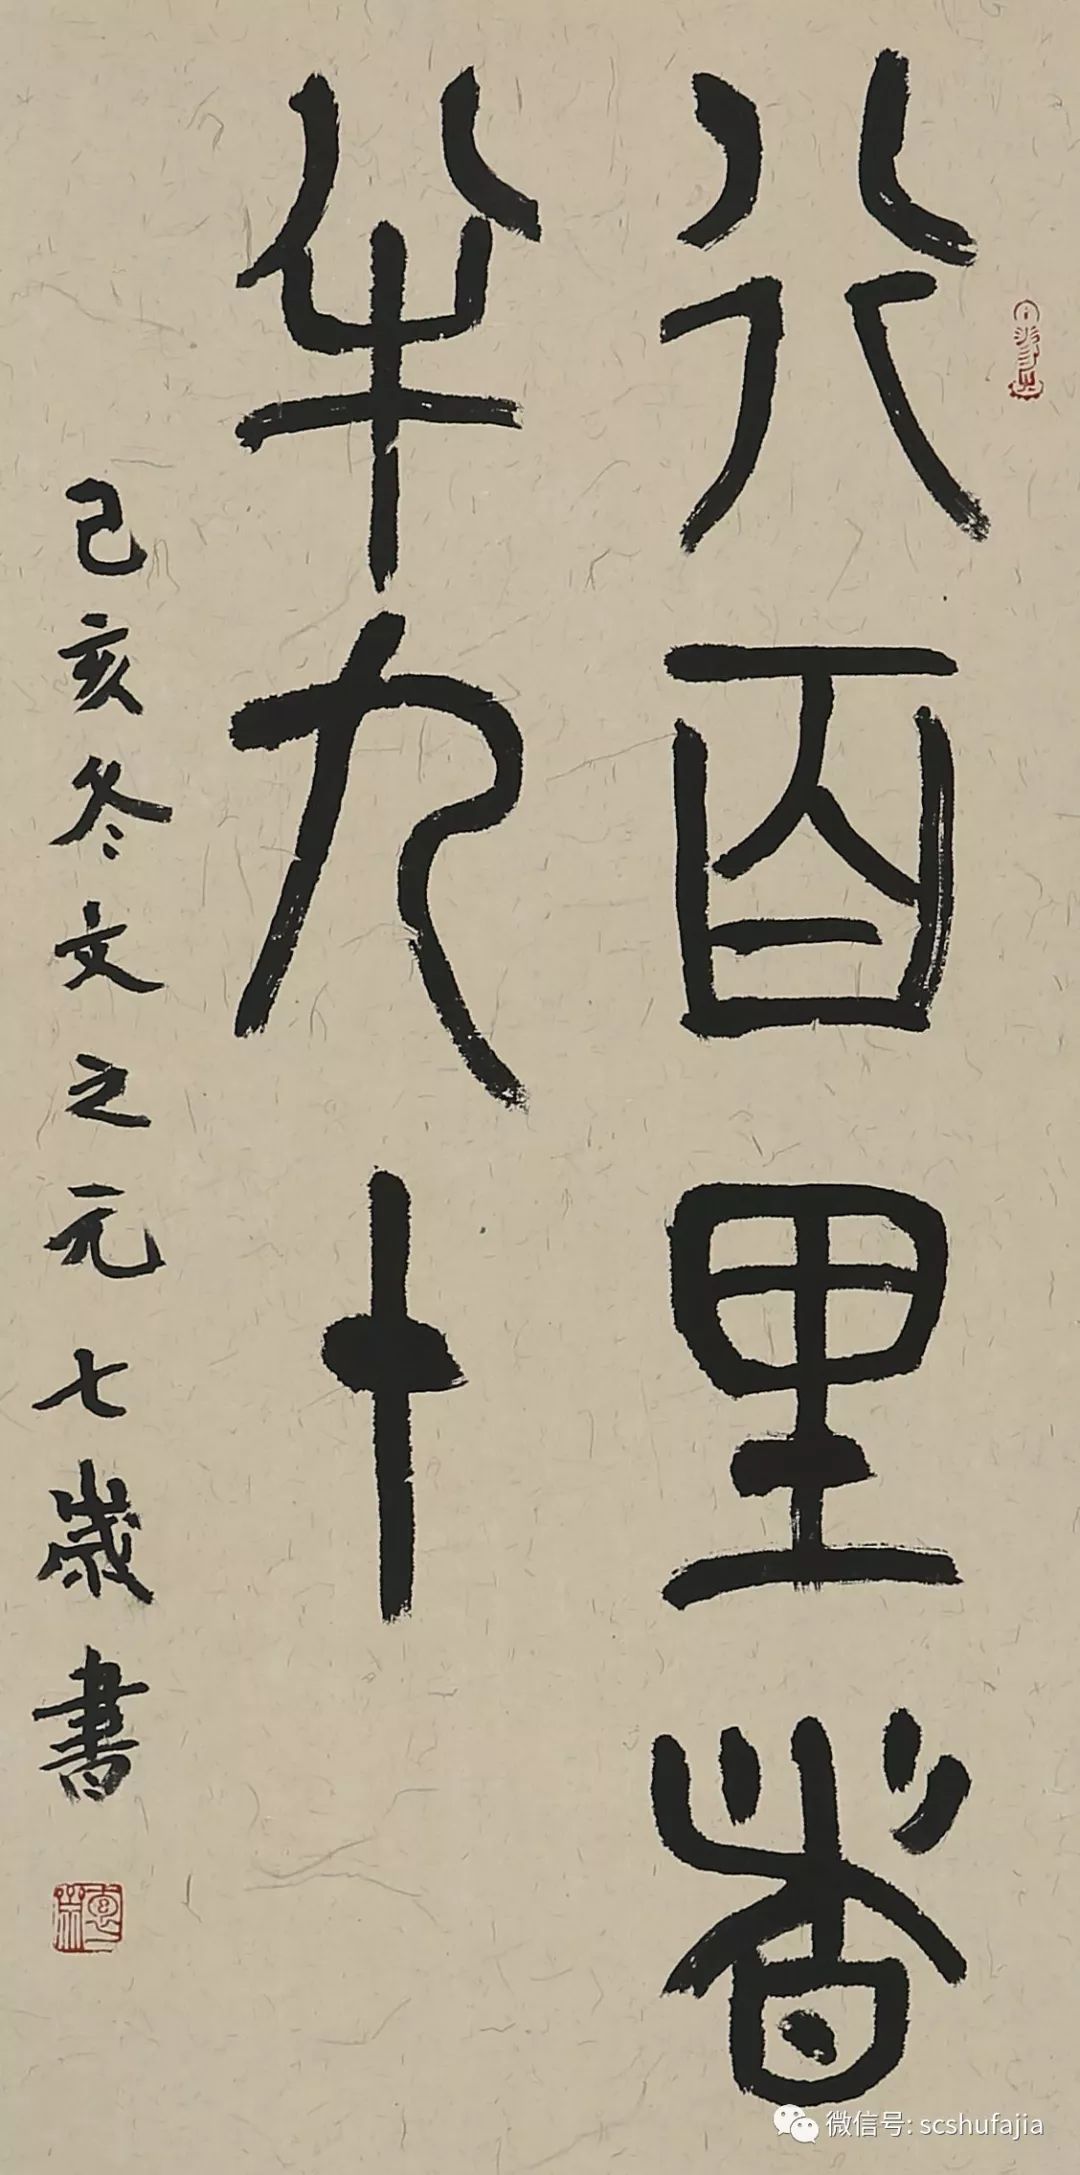 行百里者
半九十
己亥冬文之元七歲書
微信号: scshufajia